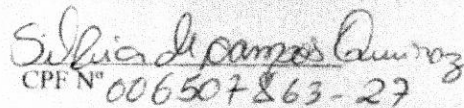 Silvia de Campos Queiroz
CPF Nº 006507863-27